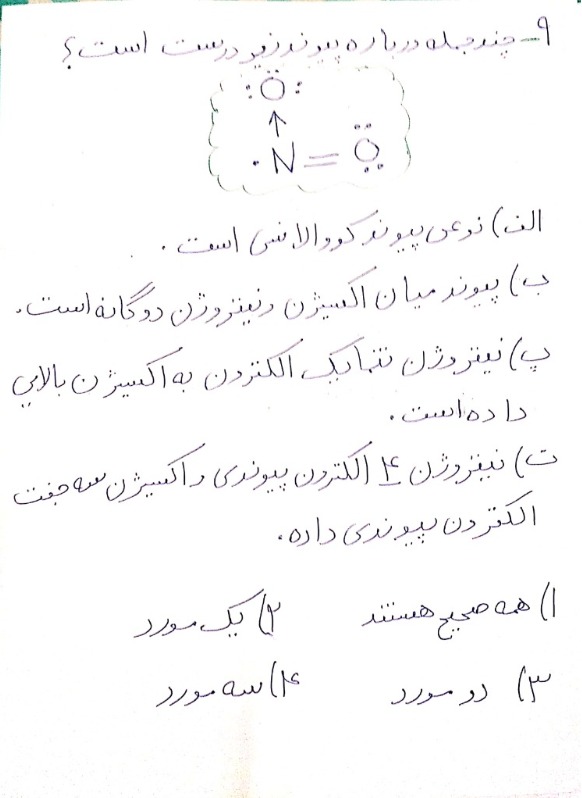 ۹- چند جمله درباره پیوند زیر درست است؟
:Ö:
↑
·N=Ö
الف) نوعی پیوند کووالانسی است.
ب) پیوند میان اکسیژن و نیتروژن دوگانه است.
پ) نیتروژن تنها یک الکترون به اکسیژن بالایی
داده است.
ت) نیتروژن ۴ الکترون پیوندی و اکسیژن سه جفت
الکترون پیوندی داده.
۱) همه صحیح هستند ۲) یک مورد
۳) دو مورد ۴) سه مورد